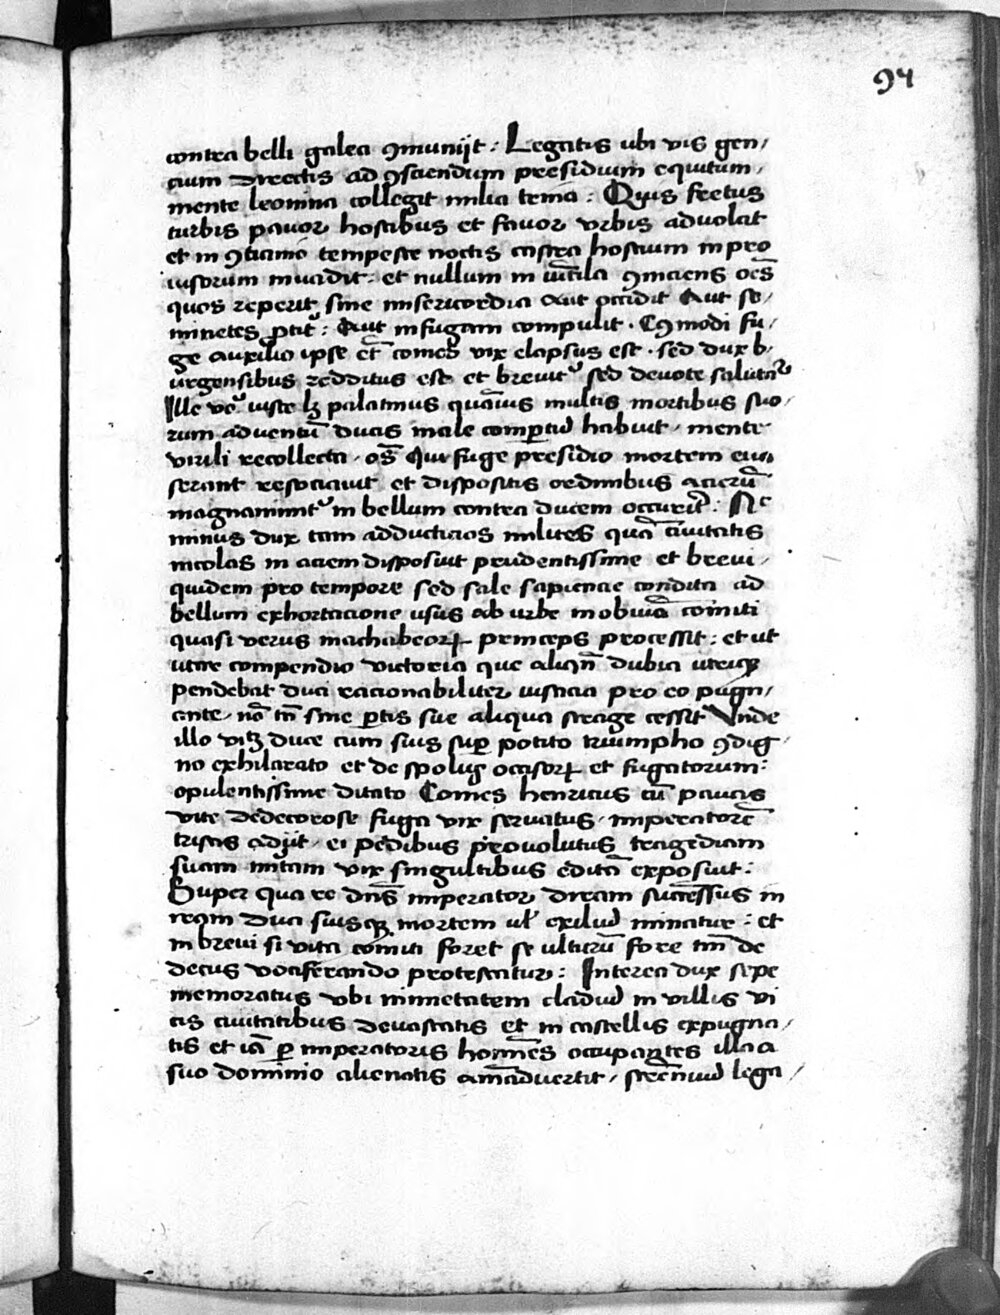 94
contra belli galea ꝯmunijt : Legatis ubi vis gen/
cium directis ad ꝯsciendum presidium equitum /
mente leonina collegit milia terna : Quis fretus
turbis pavor hostibus et favor urbis advolat
et in ꝯticinio tempeste noctis castra hostium inpro
uisorum inuadit : et nullum in ꝯmitens oēs
quos reperit sine misericordia aut occidit Aut se/
minetes : Aut in fugam compulit . Cōmodi fu/
ge auxilio ipse comes vix elapsus est . sed dux b/
urgensibus redditus est et breuit᷑ sed deuote salutat᷑
Ille vō iuste lꝫ palatinus quāuis multis mortibus suo/
rum aduentū ducis male comptū habuit / mente
virili recollecta / os̄ Qui fuge presidio mortem eua
serant resociauit et dispositis ordinibus acierū
magnanimit᷑ in bellum contra ducem occurit : Nec
minus dux tam adducticios milites quā ciuitatis
incolas in aciem disposuit prudentissime et breui /
quidem pro tempore sed sale sapiencie condita ad
bellum exhortacione usus ab urbe in obuiā comiti
quasi verus machabeoꝝ princeps processit : et ut
utar compendio victoria que aliqn̄ dubia utriqꝫ
pendebat duci racionabiliter iusticia pro eo pugn/
ante / nō tn̄ sine ꝑtis sue aliqua strage cessit Unde
illo vitꝫ duce cum suis suꝑ potito triumpho ꝯdig/
no exhilarato et de spolijs occisoꝝ et fugatorum :
opulentissime ditato Comes henricus cū paucis
vite dedecorose fuga vix seruatus / imperatorē
tristis adijt / ei pedibus prouolutus tragediam
suam vix singultibus editā exposuit :
Super qua re dn̄s imperator diram successus in
regm̄ duci suisqꝫ mortem ul᷑ exiliū minatur : et
in breui si vita comiti foret se ulturū fore tm̄ de
decus vociferando protestatur : Interea dux sepe
memoratus ubi inmetatem cladiū in villis vi
cis ciuitatibus deuastatis et in castellis expugna/
tis et iā ꝑ imperatoris homīes occupantes illa a
suo dominio alienatis aīaduertit / strēnuū lega /